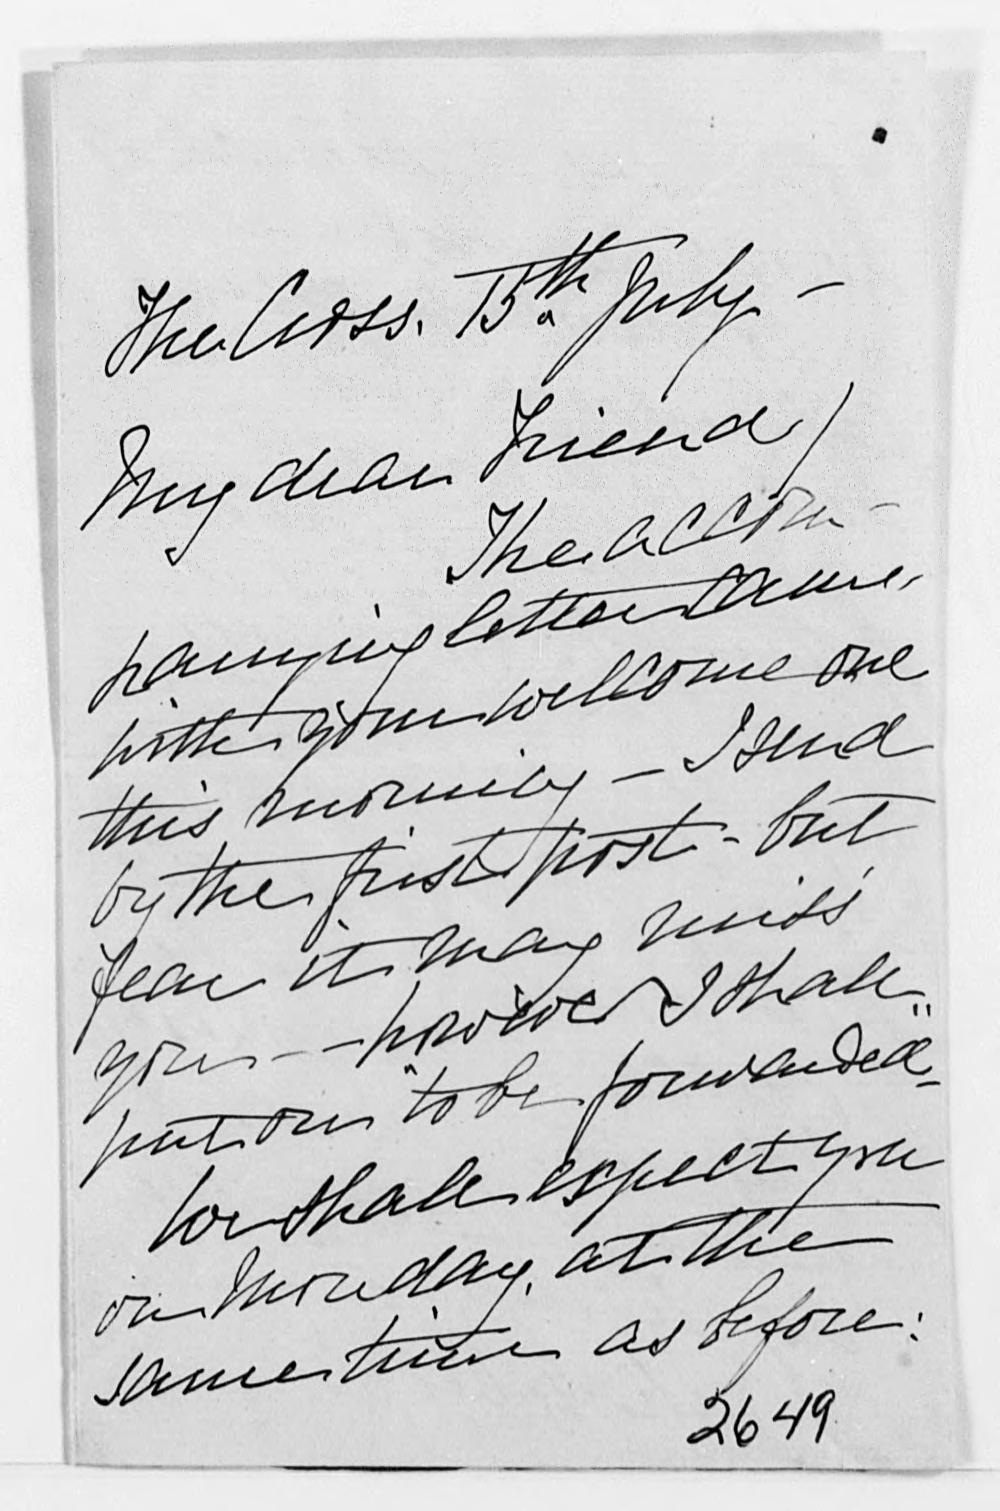 The Cross. 15th July —
My dear Friend /
The accom-
panying letter came
with your welcome one
this morning — I send
by the first post - but
fear it may miss
you -- however I shall
put on "to be forwarded"-
We shall expect you
on Monday, at the
same time as before:
2649